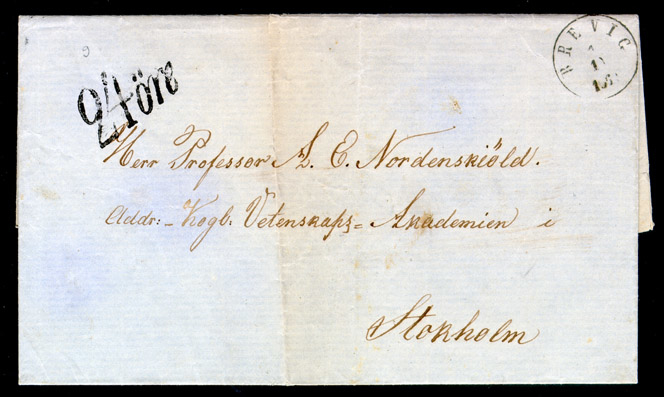 BREVIG
24 öre
Herr Professor A. E. Nordenskiöld.
Addr: - Kogb. Vetenskaps= Akademien i
Stokholm